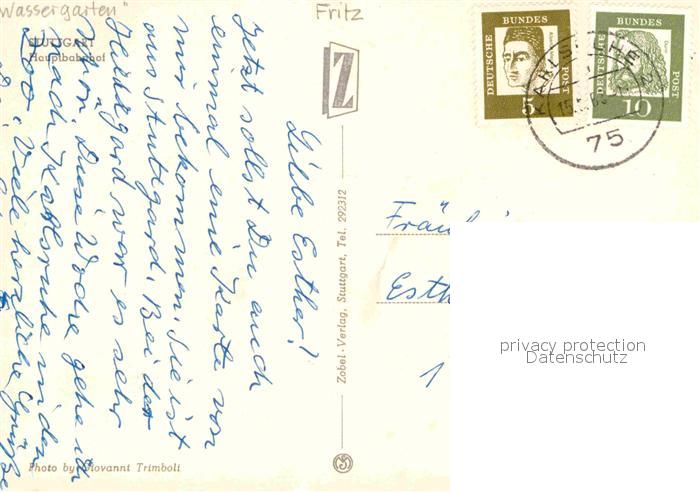 Wassergarten"
Fritz
STUTTGART
Hauptbahnhof
Z
DEUTSCHE BUNDES POST
5
DEUTSCHE BUNDES POST
10
KARLSRUHE
75
Liebe Esther!
Jetzt sollst Du auch
einmal eine Karte von
mir bekommen. Sie ist
aus Stuttgard. Bei der
Hildegard war es sehr
schön. Diese Woche gehe ich
nach Karlsruhe in den
Zoo. Viele herzliche Grüße
Zobel-Verlag, Stuttgart, Tel. 292312
Fräul
Esth
1
privacy protection
Datenschutz
Photo by Giovanni Trimboli